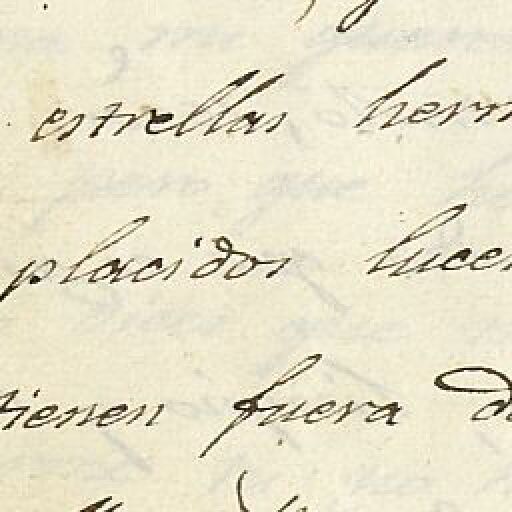 estrellas herm
placidos lucer
tienen fuera de